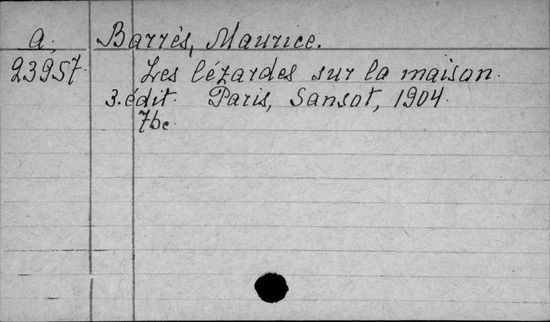 a, Barrès, Maurice.
23957. Les lézardes sur la maison.
3. édit. Paris, Sansot, 1904.
7bc.